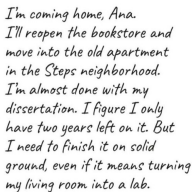 I'm coming home, Ana.
I'll reopen the bookstore and
move into the old apartment
in the Steps neighborhood.
I'm almost done with my
dissertation. I figure I only
have two years left on it. But
I need to finish it on solid
ground, even if it means turning
my living room into a lab.